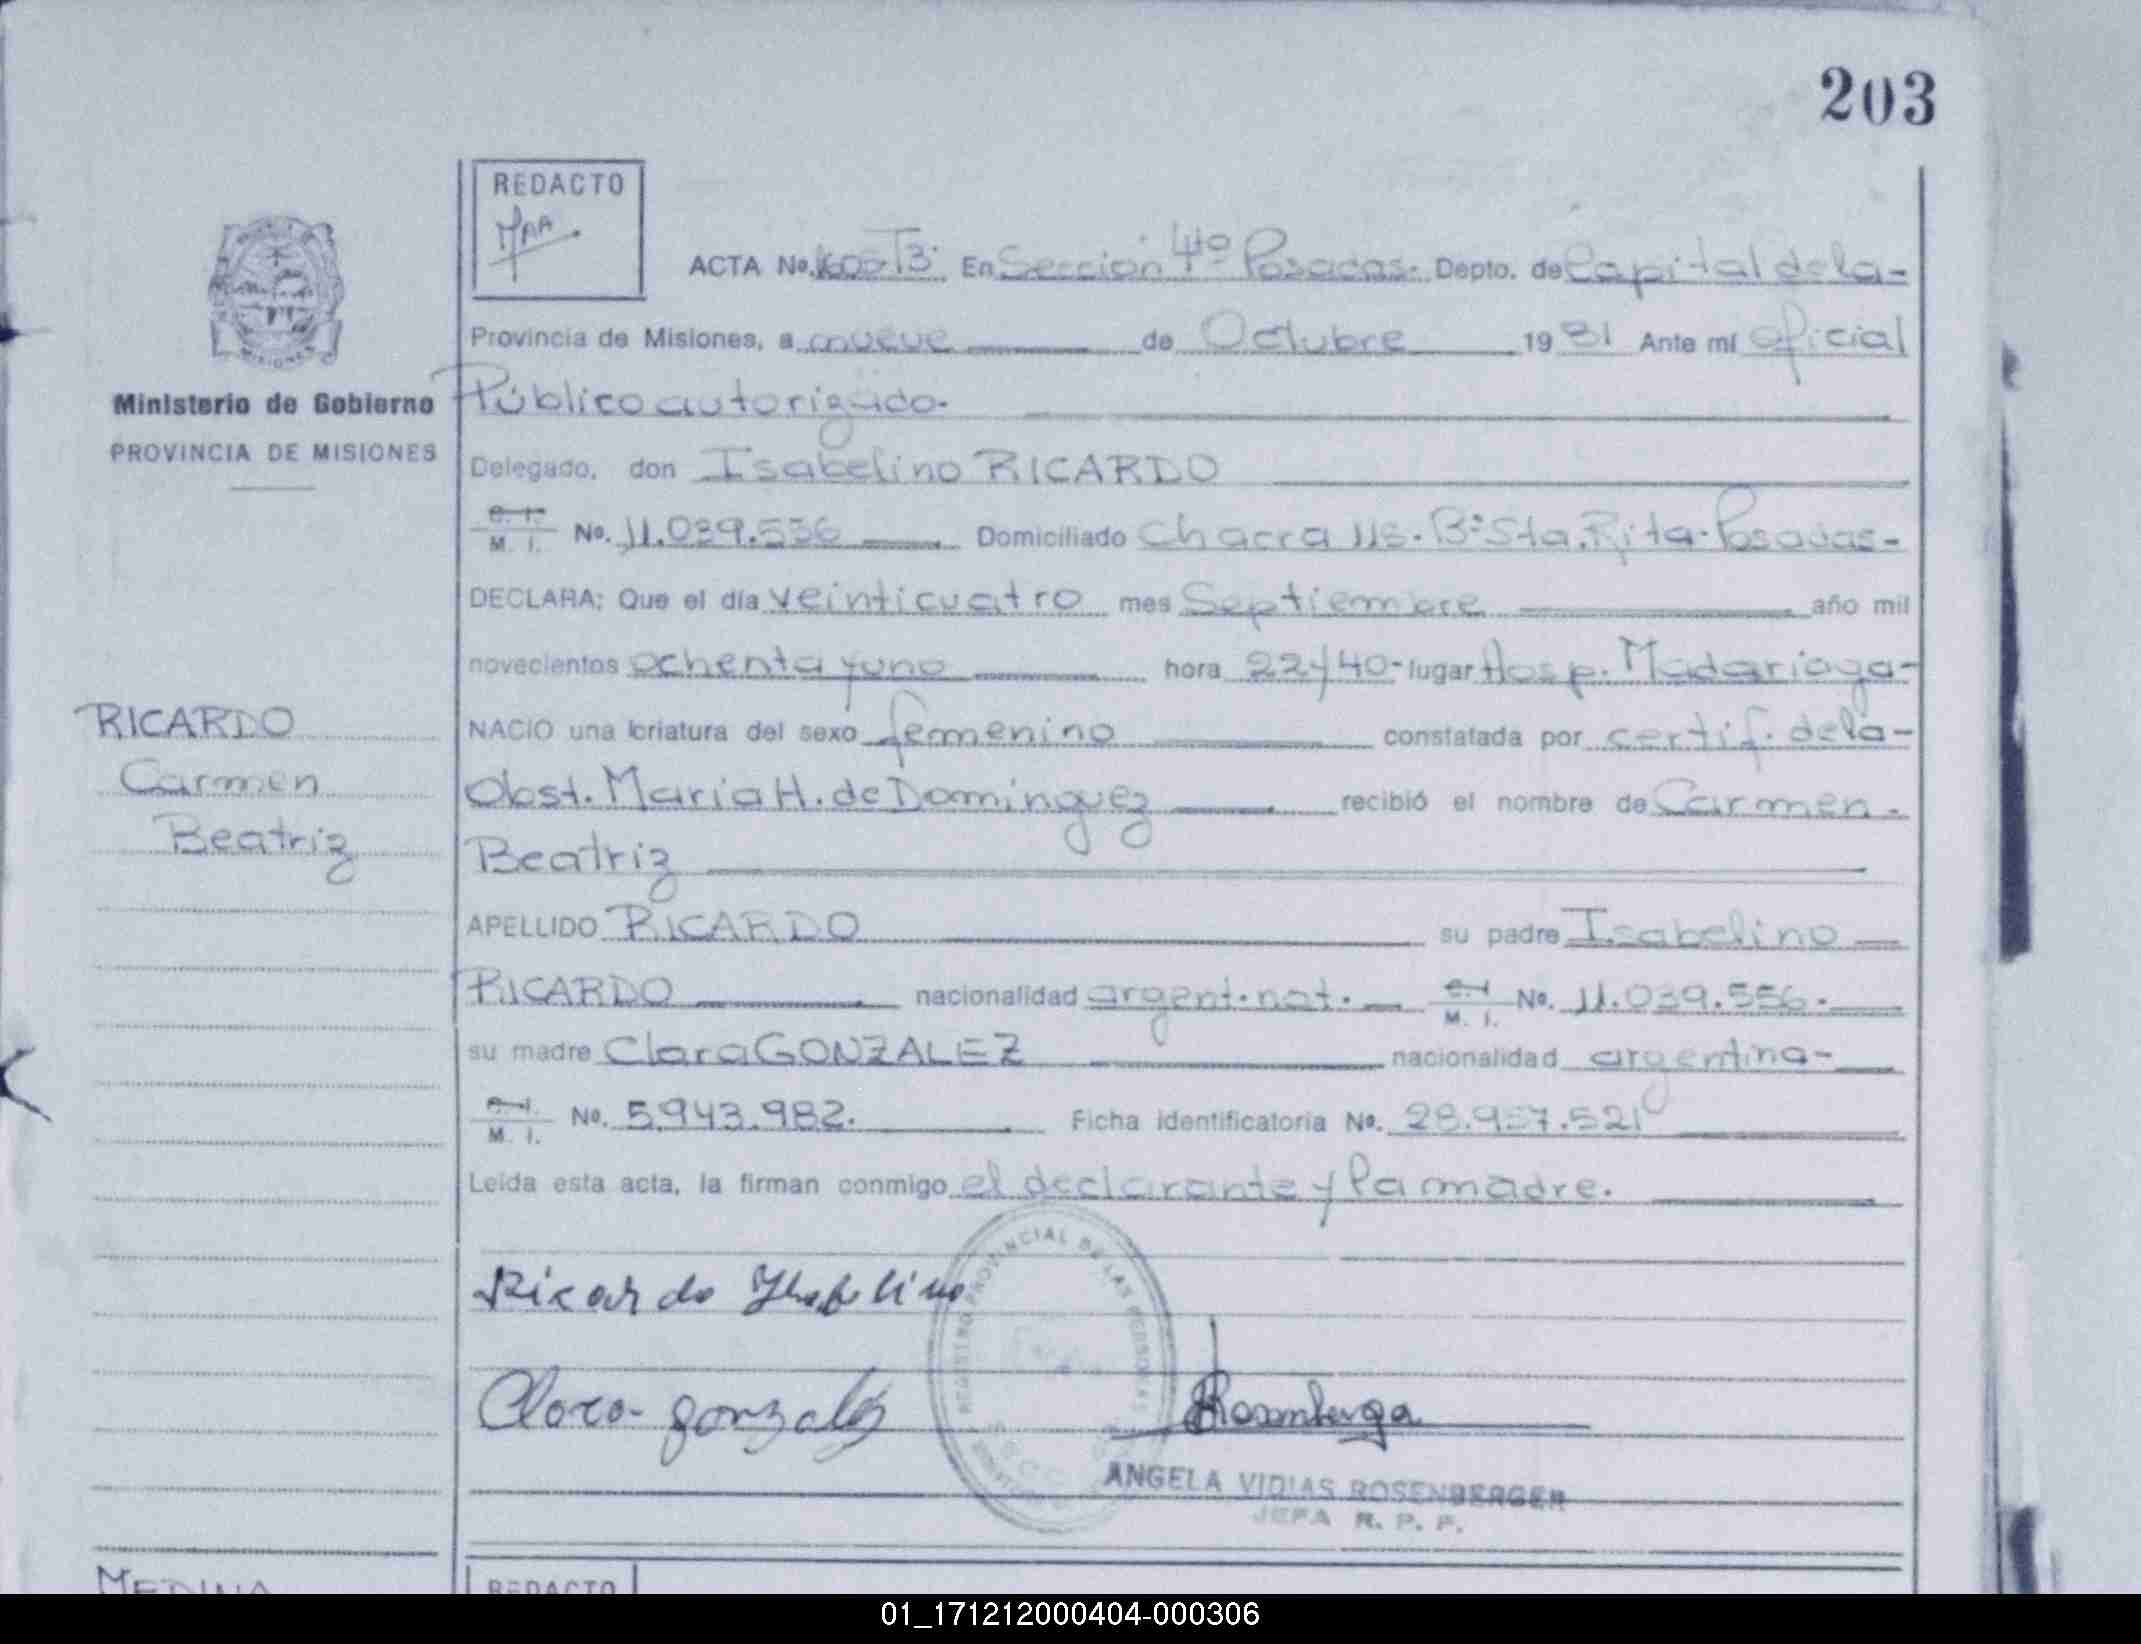 203
REDACTO
ACTA No. 600-T3. En Sección 4º Posadas. Depto. de Capital de la-
Provincia de Misiones, a nueve de Octubre 1981 Ante mí oficial
Público autorizado.
MISIONES
Ministerio de Gobierno
PROVINCIA DE MISIONES
Delegado, don Isabelino RICARDO
C. I. M. I. No. 11.039.556 Domiciliado Chacra 118. Bº Sta. Rita. Posadas-
DECLARA: Que el día veinticuatro mes Septiembre año mil
novecientos ochenta y uno hora 22y40- lugar Hosp. Madariaga-
NACIO una criatura del sexo femenino constatada por certif. de la-
Obst. Maria H. de Dominguez recibió el nombre de Carmen.
Beatriz
RICARDO
Carmen
Beatriz
APELLIDO RICARDO su padre Isabelino
RICARDO nacionalidad argent. nat. C. I. M. I. No. 11.039.556.
su madre Clara GONZALEZ nacionalidad argentina-
C. I. M. I. No. 5.943.982. Ficha identificatoria No. 28.957.521
Leída esta acta, la firman conmigo el declarante y la madre.
Ricardo Isabelino
REGISTRO PROVINCIAL DE LAS PERSONAS
Clara gonzales
ANGELA VIDIAS ROSENBERGER
JEFA R. P. P.
MEDINA
REDACTO
01_171212000404-000306